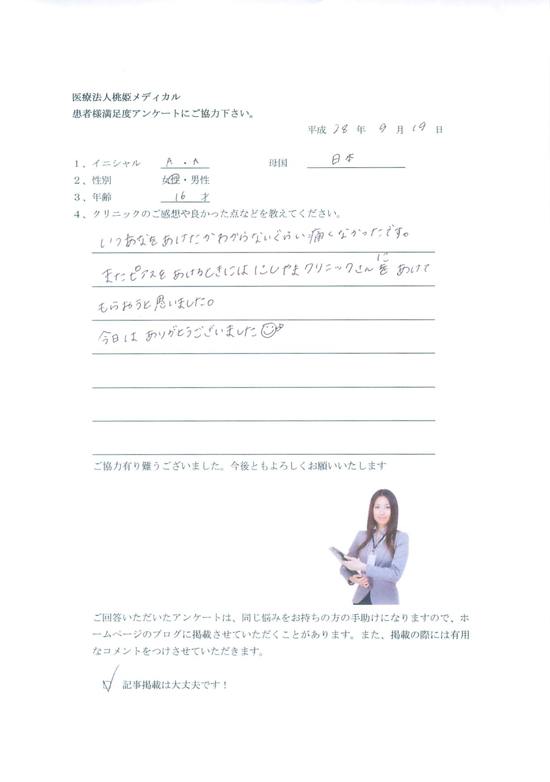 医療法人桃姫メディカル
患者様満足度アンケートにご協力下さい。
平成 28 年 9 月 19 日
1、イニシャル A . A 母国 日本
2、性別 女性・男性
3、年齢 16 才
4、クリニックのご感想や良かった点などを教えてください。
いつあなをあけたかわからないぐらい痛くなかったです。
またピアスをあけるときにはにしやまクリニックさんにあけて
もらおうと思いました。
今日はありがとうございました
ご協力有り難うございました。今後ともよろしくお願いいたします
ご回答いただいたアンケートは、同じ悩みをお持ちの方の手助けになりますので、ホ
ームページのブログに掲載させていただくことがあります。また、掲載の際には有用
なコメントをつけさせていただきます。
記事掲載は大丈夫です！